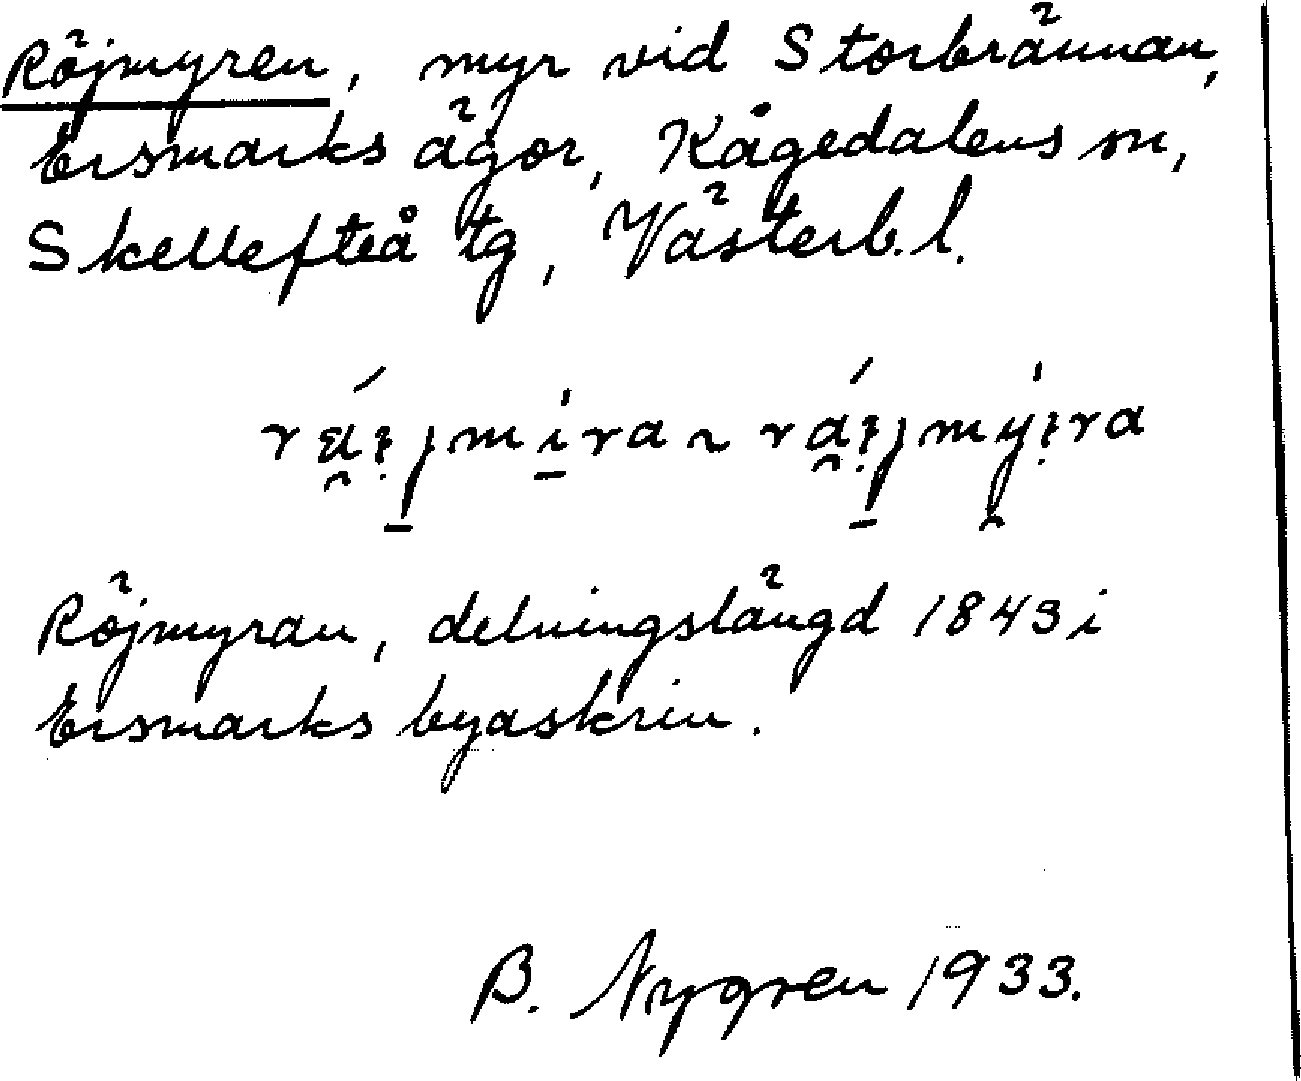 Röjmyren, myr vid Storbrännan,
Ersmarks ägor, Kågedalens sn,
Skellefteå tg, Västerb. l.
Röjmyran, delningslängd 1843 i
Ersmarks byaskrin.
B. Nygren 1933.